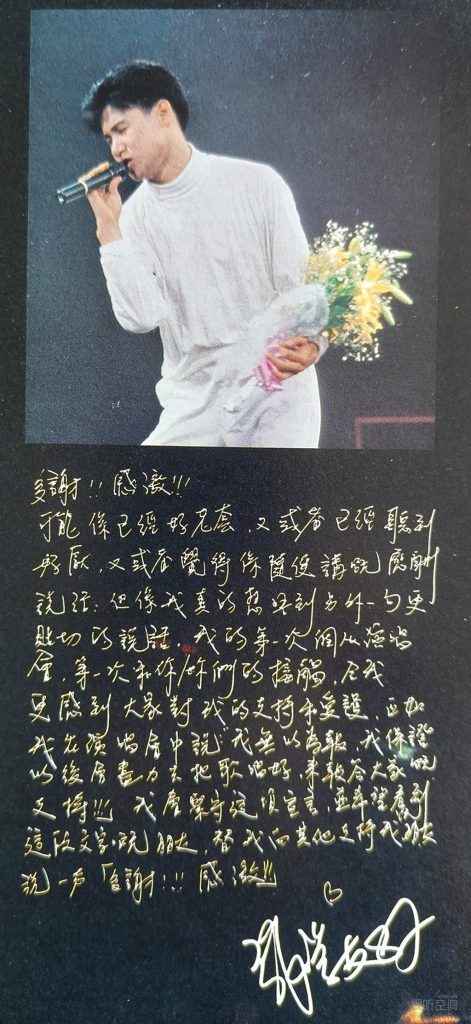 多謝!! 感激!!!
可能係已經好老套，又或者已經聽到
好厭，又或者覺得係隨便講既感謝
說話. 但係我真的想唔到另外一句更
貼切的說話. 我的第一次個人演唱
會，第一次和你你們的接觸，令我
更感到大家對我的支持和愛護，正如
我在演唱會中說"我無以為報，我保證
以後會盡力去把歌唱好，來報答大家既
支持!!! 我會堅守這項宣言，並希望看到
這段文字既朋友，替我向其他支持我朋友
說一声「多謝!!! 感激!!」
视听空间